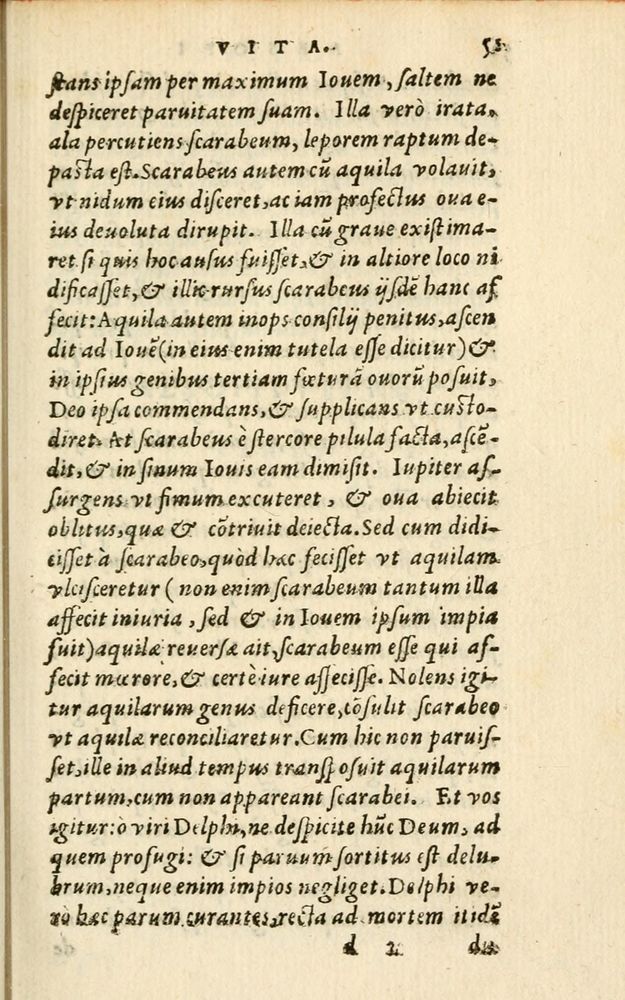 VITA. 51
stans ipsam per maximum Iouem, saltem ne
despiceret paruitatem suam. Illa verò irata,
ala percutiens scarabeum, leporem raptum de-
pasta est. Scarabeus autem cū aquila volauit,
vt nidum eius disceret, ac iam profectus oua e-
ius deuoluta dirupit. Illa cū graue existima-
ret si quis hoc ausus fuisset, & in altiore loco ni
dificasset, & illic rursus scarabeus ijsdē hanc af
fecit: Aquila autem inops consilij penitus, ascen
dit ad Iouē (in eius enim tutela esse dicitur) &
in ipsius genibus tertiam fœturā ouorū posuit,
Deo ipsa commendans, & supplicans vt custo-
diret. At scarabeus è stercore pilula facta, ascē-
dit, & in sinum Iouis eam dimisit. Iupiter as-
surgens vt fimum excuteret, & oua abiecit
oblitus, quæ & cōtriuit deiecta. Sed cum didi-
cisset à scarabeo, quòd hæc fecisset vt aquilam
vlcisceretur (non enim scarabeum tantum illa
affecit iniuria, sed & in Iouem ipsum impia
fuit) aquilæ reuersæ ait, scarabeum esse qui af-
fecit mœrore, & certè iure affecisse. Nolens igi-
tur aquilarum genus deficere, cōsulit scarabeo
vt aquilæ reconciliaretur. Cum hic non paruis-
set, ille in aliud tempus transposuit aquilarum
partum, cum non appareant scarabei. Et vos
igitur: ò viri Delphi, ne despicite hūc Deum, ad
quem profugi: & si paruum sortitus est delu-
brum, neque enim impios negliget. Delphi ve-
rò hæc parum curantes, recta ad mortem itidē
d 2 du